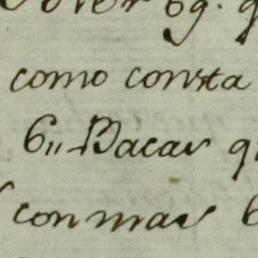 69. q
como consta
6,, Bacas q
con mas 6